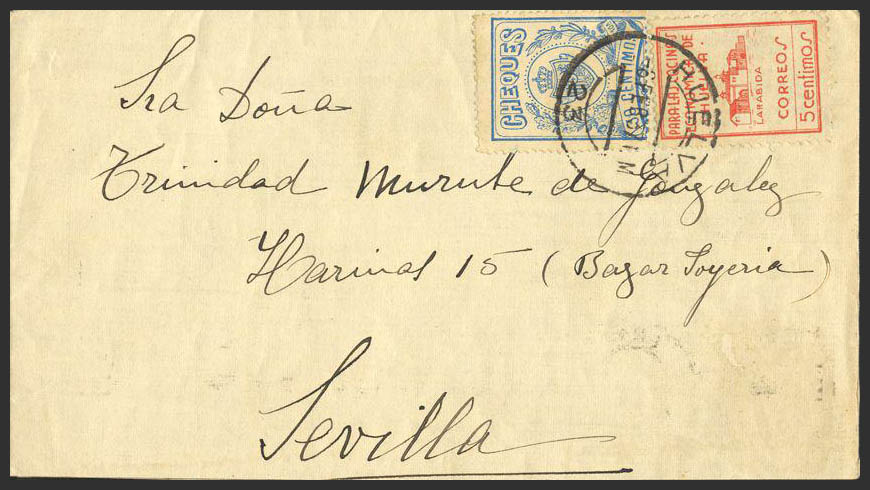 CHEQUES
PARA LAS COCINAS
HUELVA
LA RABIDA
CORREOS
5 centimos
HUELVA
Sra Doña
Trinidad Murube de Gonzalez
Harinas 15 (Bazar Joyeria)
Sevilla